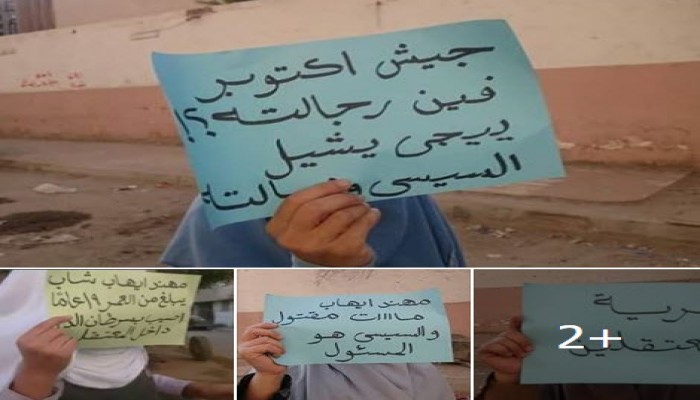 جيش اكتوبر
فين رجالته؟!
ييجى يشيل
السيسى
مهند ايهاب شاب
يبلغ من العمر ١٩ عامًا
اصيب بسرطان الدم
داخل المعتقل
مهند ايهاب
مااات مقتول
والسيسى هو
المسئول
2+